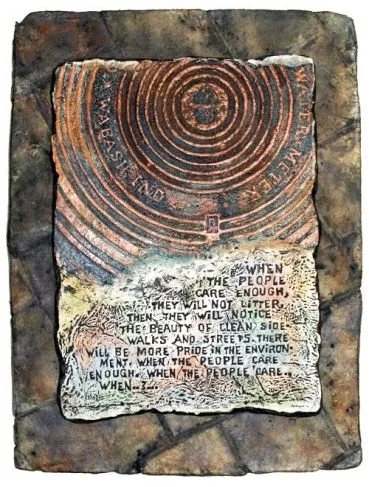 WABASH, IND
WATER METER
WHEN
THE PEOPLE
CARE ENOUGH,
THEY WILL NOT LITTER,
THEN THEY WILL NOTICE
THE BEAUTY OF CLEAN SIDE-
WALKS AND STREETS. THERE
WILL BE MORE PRIDE IN THE ENVIRON-
MENT. WHEN THE PEOPLE CARE
ENOUGH. WHEN THE PEOPLE CARE..
WHEN..?...